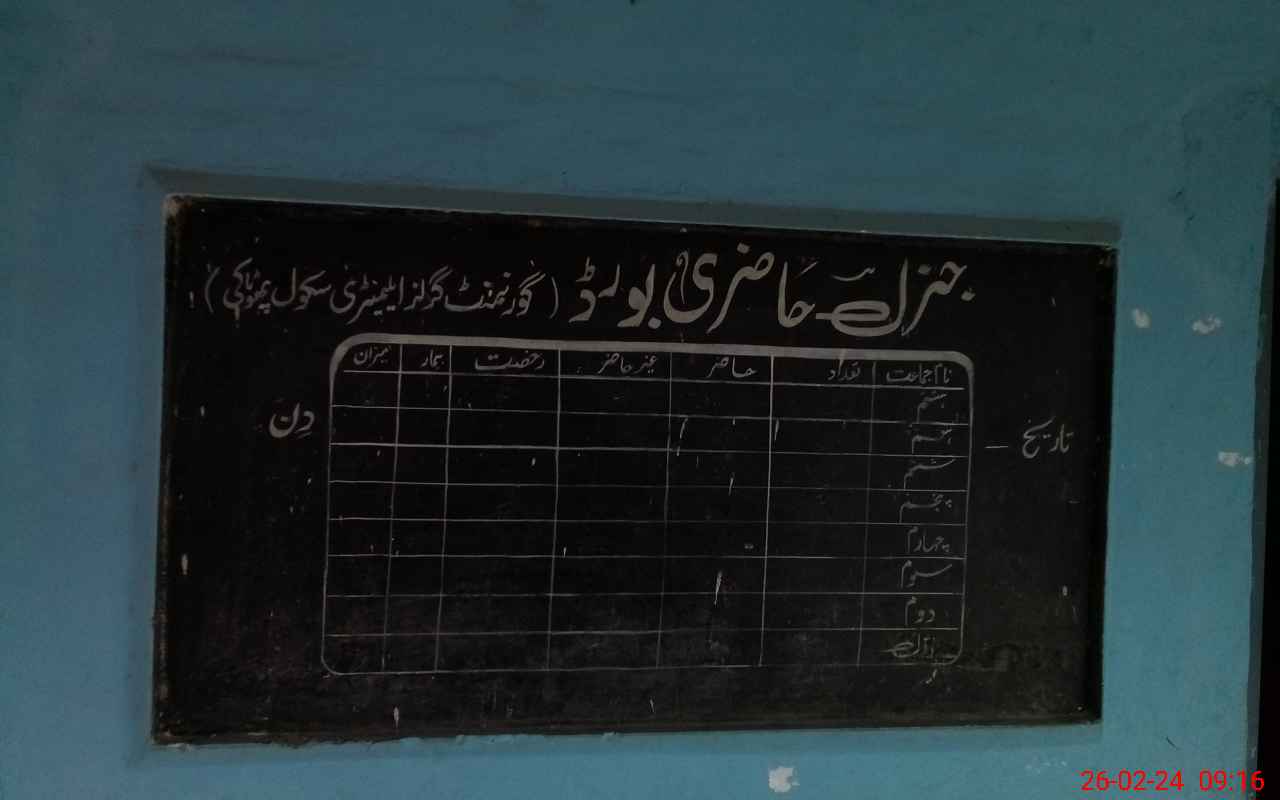 جنرل حاضری بورڈ ( گورنمنٹ گرلز ایلیمنٹری سکول )
نام جماعت تعداد حاضر غیر حاضر رخصت بیمار میزان
ہشتم
ہفتم
ششم
پنجم
چہارم
سوم
دوم
تاریخ —
دن
26-02-24 09:16